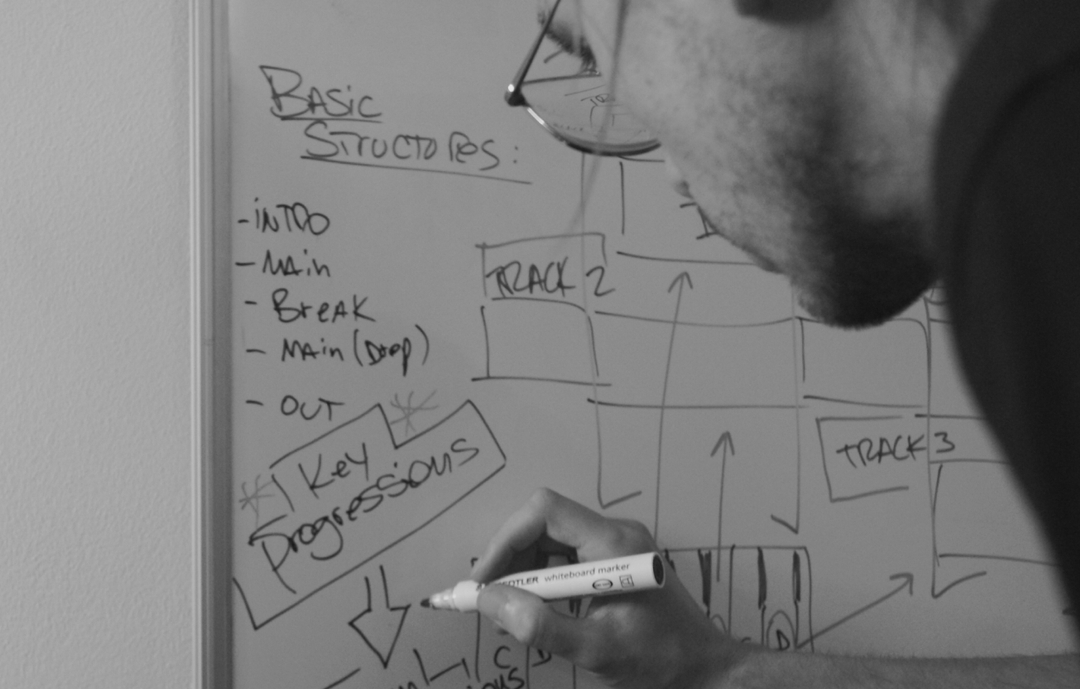 BASIC
STRUCTURES:
-INTRO
-MAin
- BreAK
- MAin (Drop)
- OUT
Key
Progressions
TRACK 2
TRACK 3
whiteboard marker
C D
D